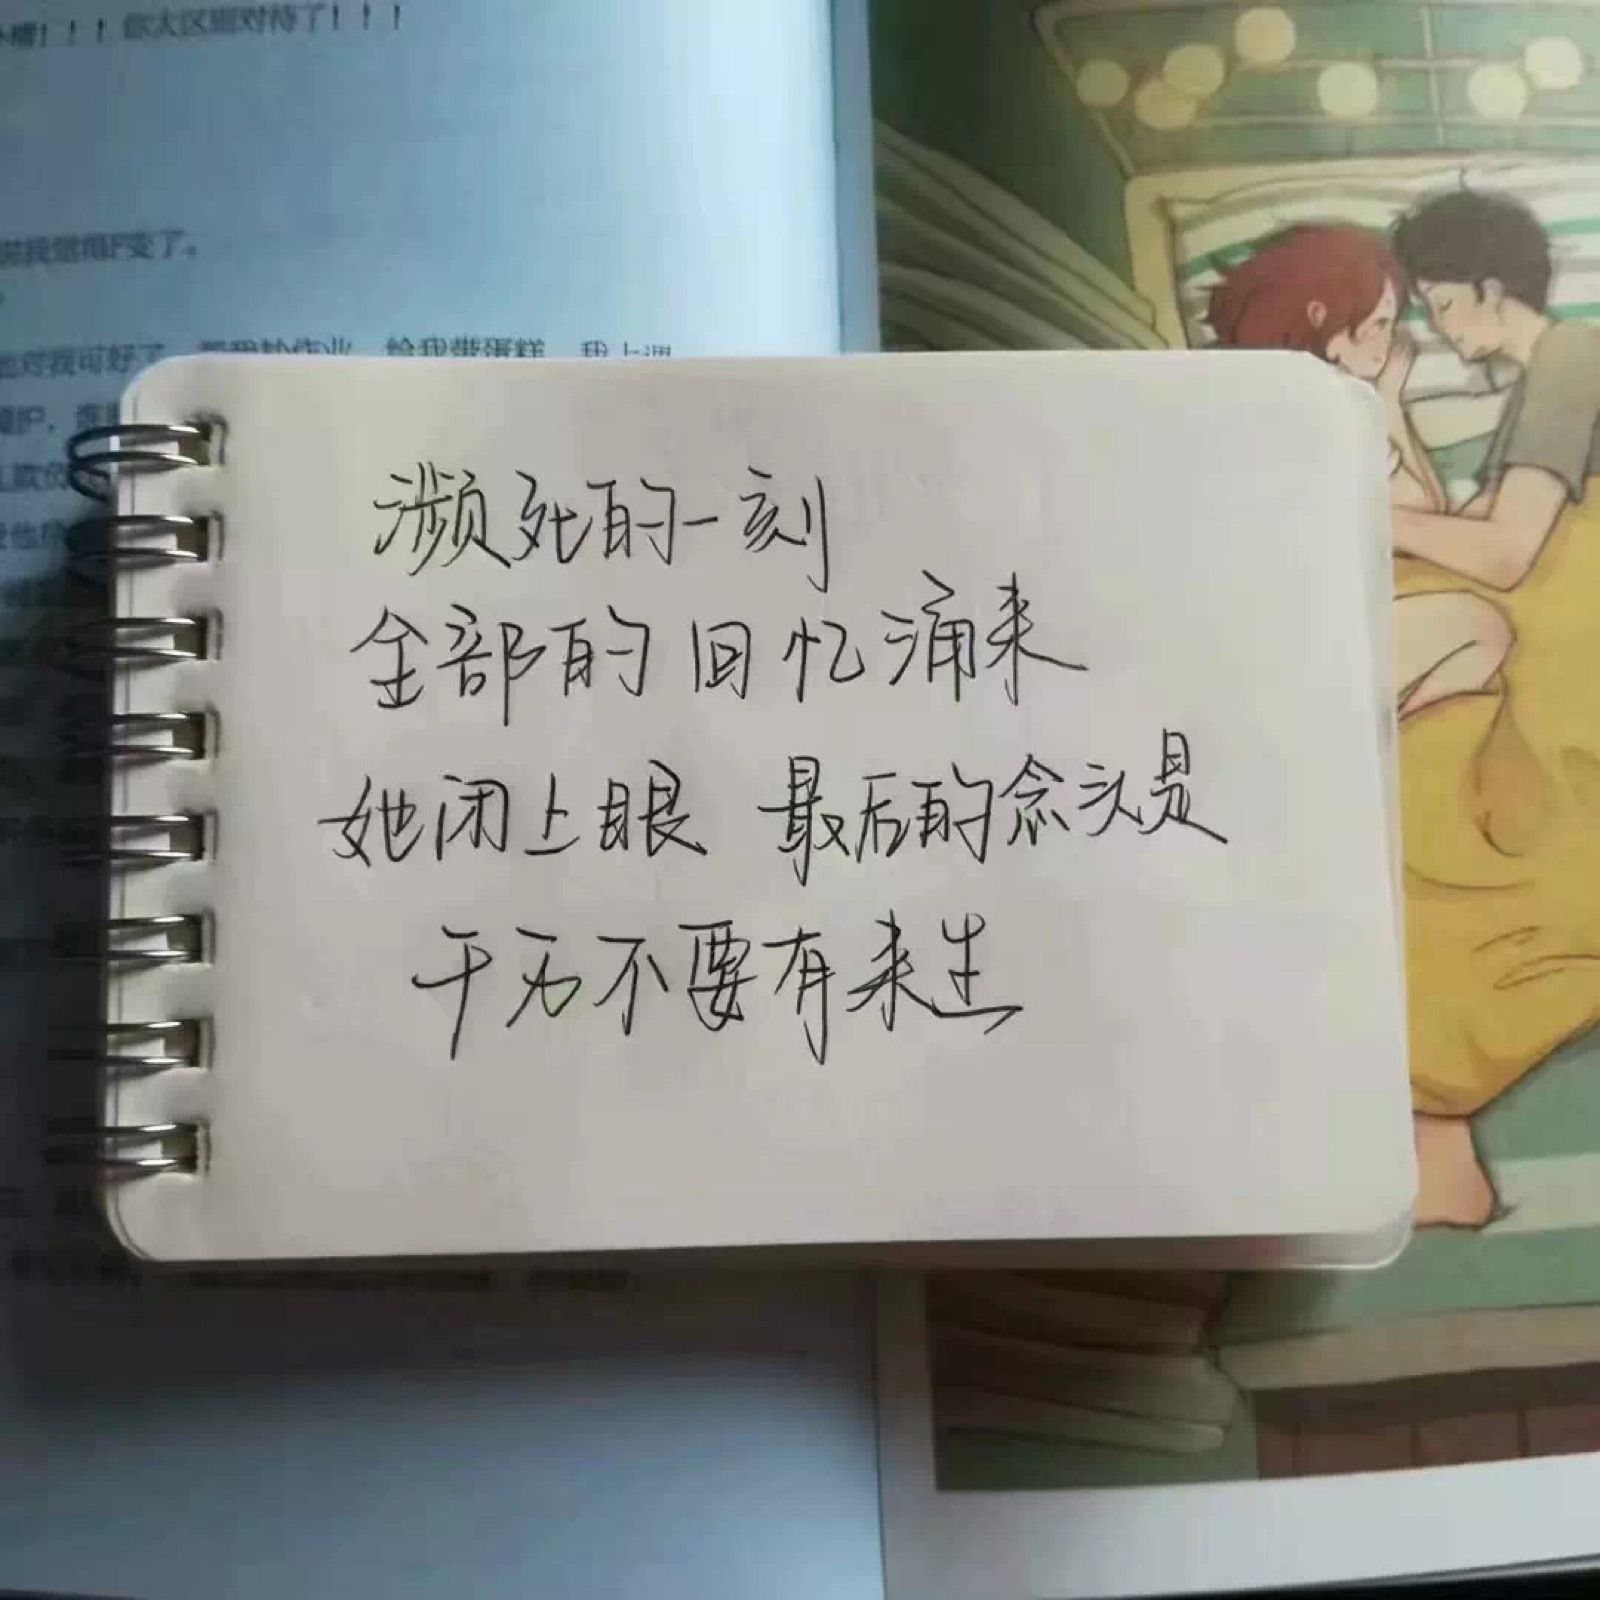 你太区别对待了！！！
变了。
对我可好了
作业，给我带蛋糕，我上课
濒死的一刻
全部的回忆涌来
她闭上眼 最后的念头是
千万不要有来生